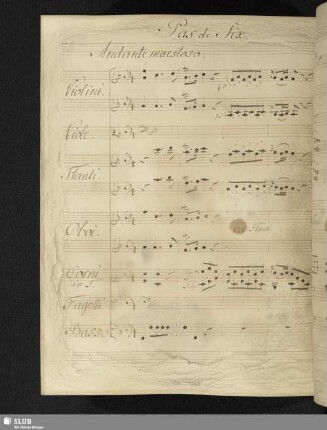 Pas de Six
Andante maestoso.
Violini.
Viole.
Flauti
Oboi.
Corni
Fagotti
Basso
SLUB
Wir führen Wissen.